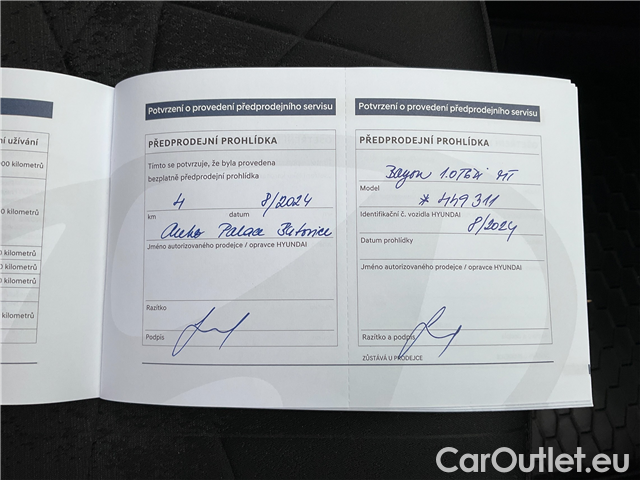 í užívání
00 kilometrů
0 kilometrů
0 kilometrů
0 kilometrů
kilometrů
Potvrzení o provedení předprodejního servisu
PŘEDPRODEJNÍ PROHLÍDKA
Tímto se potvrzuje, že byla provedena
bezplatně předprodejní prohlídka
4 8/2024
km datum
Palace Butovice
Jméno autorizovaného prodejce / opravce HYUNDAI
Razítko
Podpis
Potvrzení o provedení předprodejního servisu
PŘEDPRODEJNÍ PROHLÍDKA
Bayon 1.0 MT
Model
*449311
Identifikační č. vozidla HYUNDAI
8/2024
Datum prohlídky
Jméno autorizovaného prodejce / opravce HYUNDAI
Razítko a podpis
ZŮSTÁVÁ U PRODEJCE
CarOutlet.eu